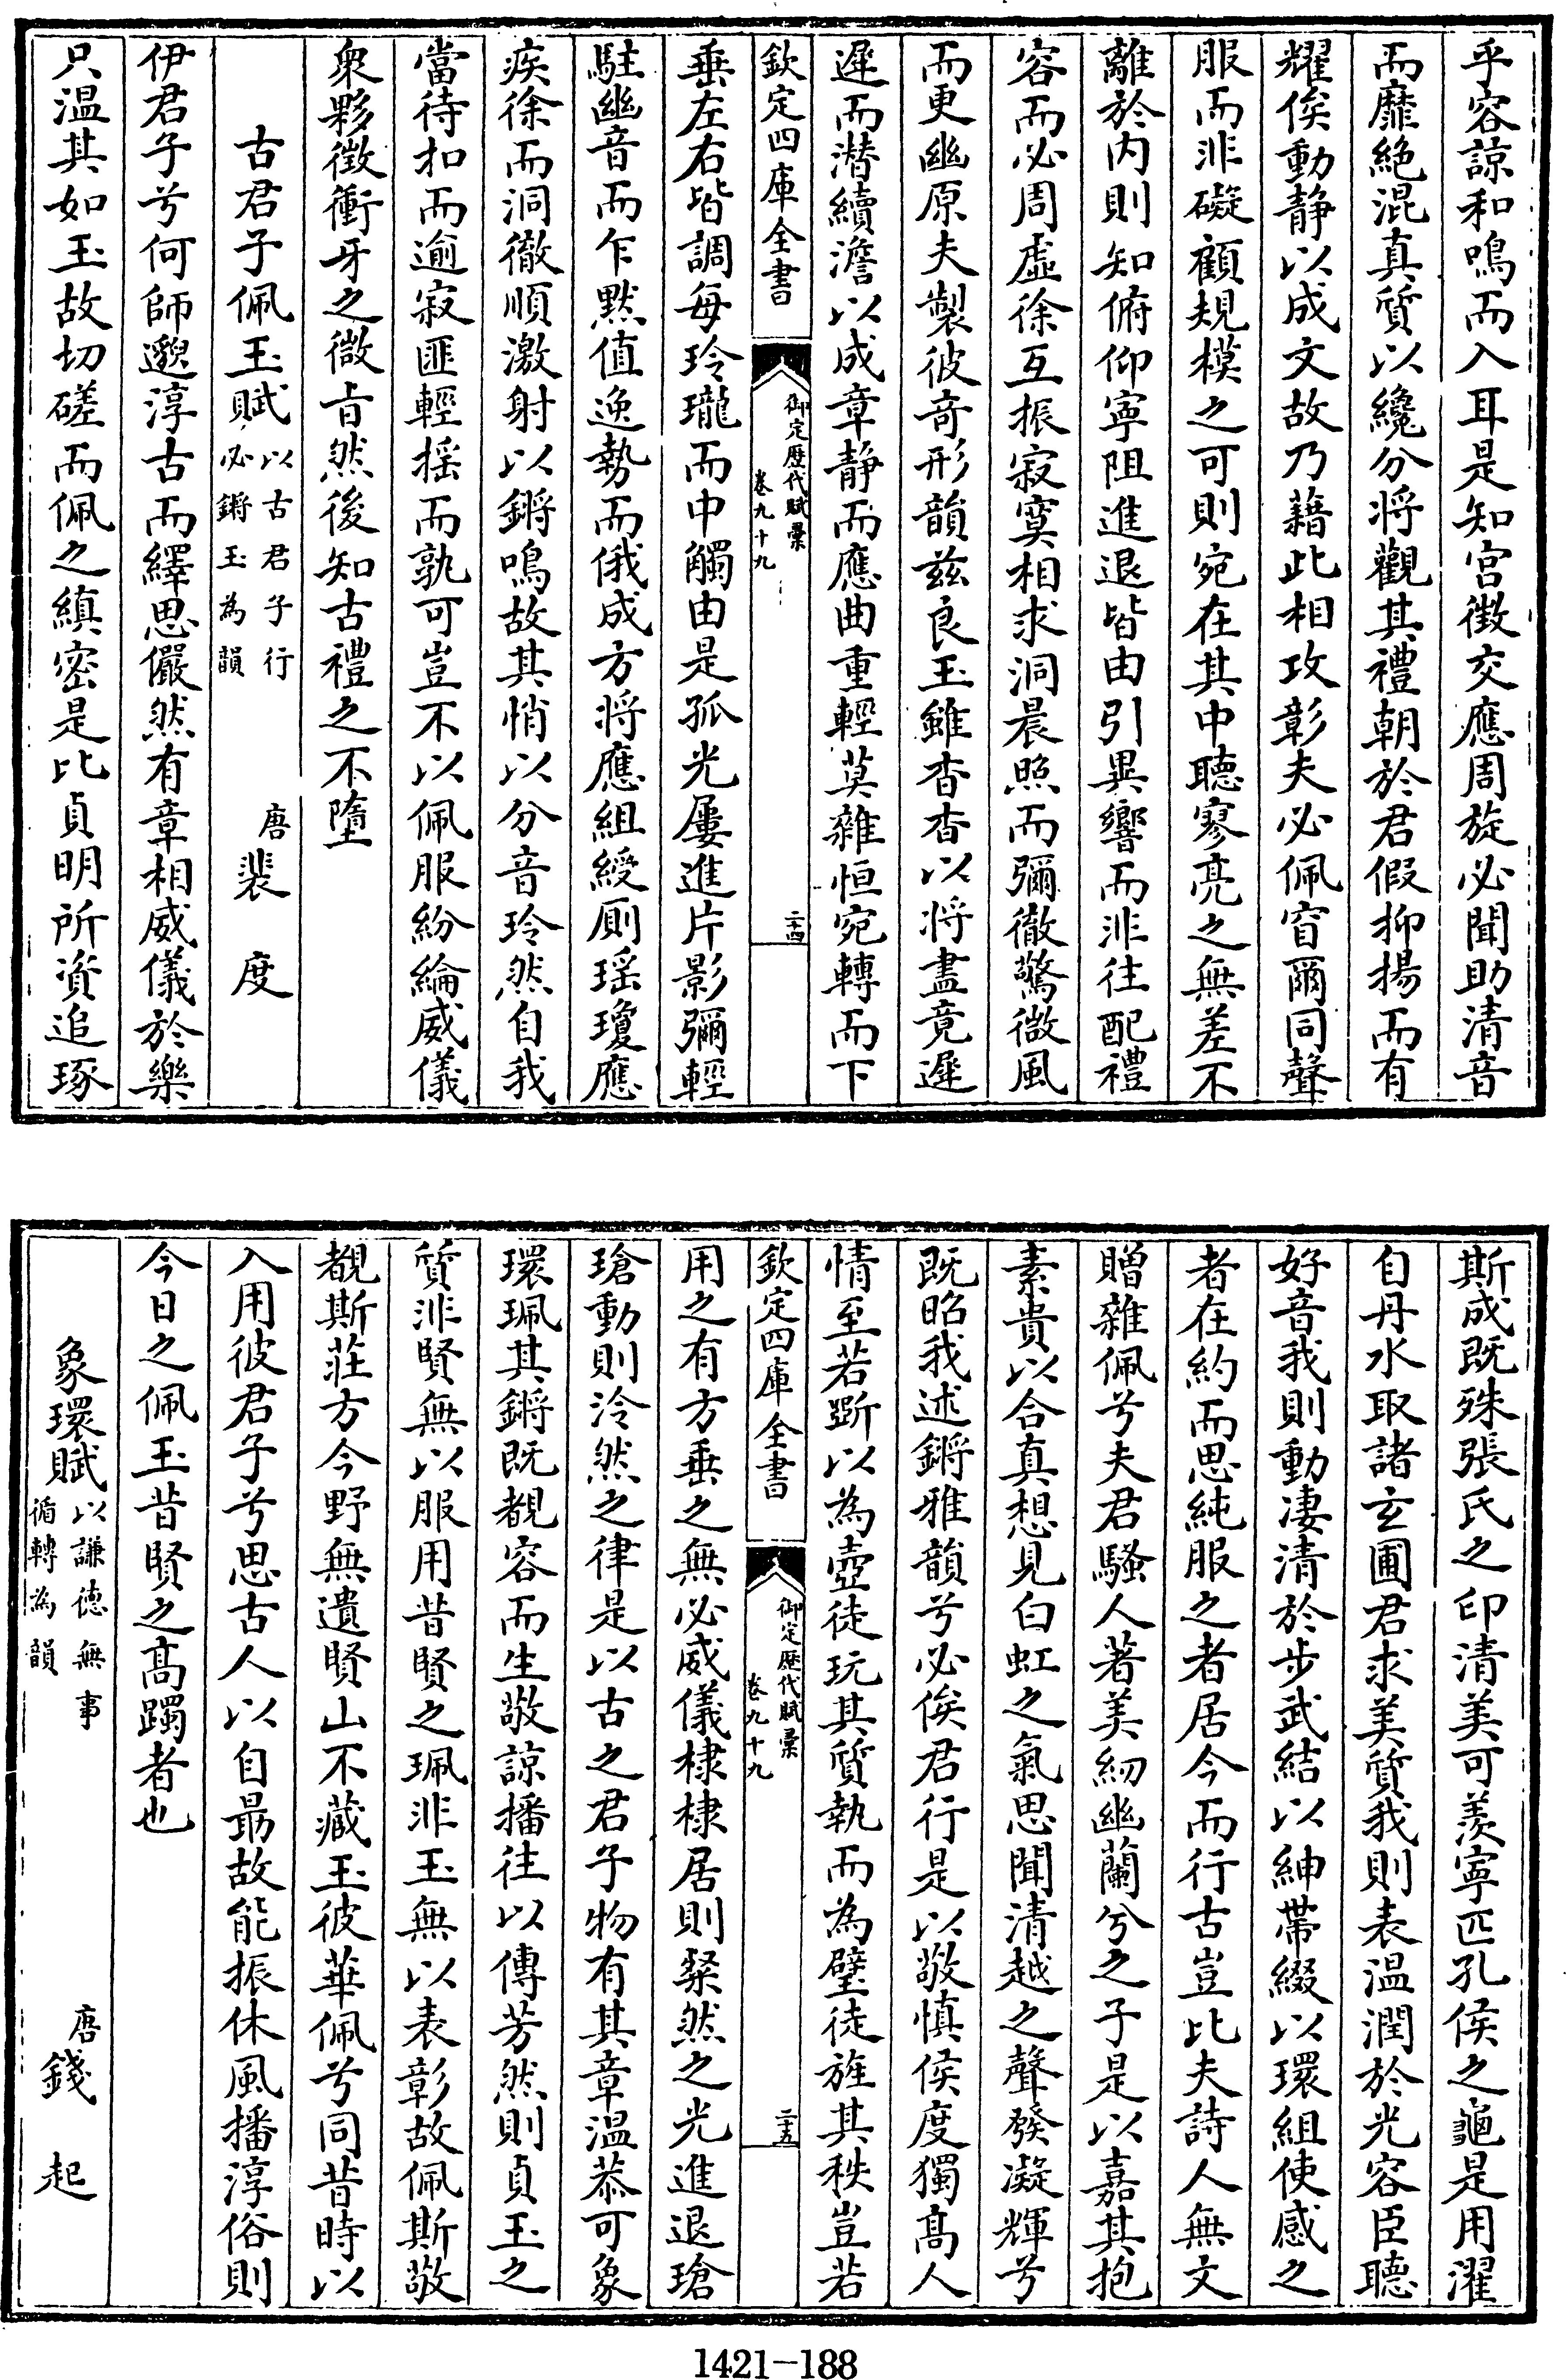 乎容諒和鳴而入耳是知宫徴交應周旋必聞助清音
而靡絶混真質以纔分将觀其禮朝於君假抑揚而有
耀俟動静以成文故乃藉此相攻彰夫必佩窅爾同聲
服而非礙顧規模之可則宛在其中聽寥亮之無差不
離於内則知俯仰寧阻進退皆由引異響而非往配禮
容而必周虚徐互振寂寞相求洞晨照而彌徹驚微風
而更幽原夫製彼奇形韻兹良玉雖杳杳以将盡竟遲
遲而潜續澹以成章静而應曲重輕莫雜恒宛轉而下
欽定四庫全書
御定歴代賦彚
卷九十九
二十四
垂左右皆調每玲瓏而中觸由是孤光屢進片影彌輕
駐幽音而乍黙值逸勢而俄成方将應組綬厠瑶瓊應
疾徐而洞徹順激射以鏘鳴故其悄以分音玲然自我
當待扣而逾寂匪輕揺而孰可豈不以佩服紛綸威儀
衆夥徴衝牙之微旨然後知古禮之不墮
古君子佩玉賦
以古君子行
必鏘玉為韻
唐
裴度
伊君子兮何師邈淳古而繹思儼然有章相威儀於樂
只温其如玉故切磋而佩之縝密是比貞明所資追琢
斯成既殊張氏之印清美可羡寧匹孔侯之龜是用濯
自丹水取諸玄圃君求美質我則表温潤於光容臣聽
好音我則動凄清於步武結以紳帶綴以環組使感之
者在約而思純服之者居今而行古豈比夫詩人無文
贈雜佩兮夫君騷人著美紉幽蘭兮之子是以嘉其抱
素貴以合真想見白虹之氣思聞清越之聲發凝輝兮
既昭我述鏘雅韻兮必俟君行是以敬慎侯度獨髙人
情至若斲以為壺徒玩其質執而為璧徒旌其秩豈若
欽定四庫全書
御定歴代賦彚
卷九十九
二十五
用之有方垂之無必威儀棣棣居則粲然之光進退瑲
瑲動則泠然之律是以古之君子物有其章温恭可象
環珮其鏘既覩容而生敬諒播徃以傳芳然則貞玉之
質非賢無以服用昔賢之珮非玉無以表彰故佩斯敬
覩斯莊方今野無遺賢山不藏玉彼華佩兮同昔時以
入用彼君子兮思古人以自朂故能振休風播淳俗則
今日之佩玉昔賢之髙躅者也
象環賦
以謙德無事
循轉為韻
唐
錢起
1421-188